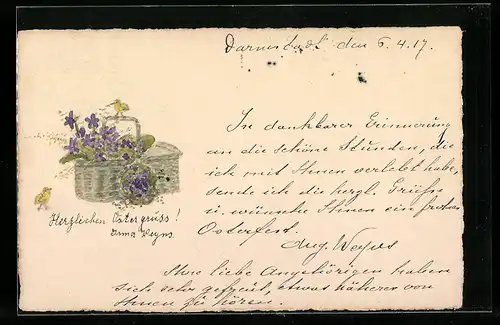 Darmstadt den 6.4.17.
In dankbarer Erinnerung
an die schöne Stunden, die
ich mit Ihnen verlebt habe,
sende ich die herzl. Grüsse
u. wünsche Ihnen ein frohes
Osterfest.
Aug. Weyns
Herzlichen Ostergruss!
Anna Weyns.
Ihre liebe Angehörigen haben
sich sehr gefreut, etwas näheres von
Ihnen zu hören.